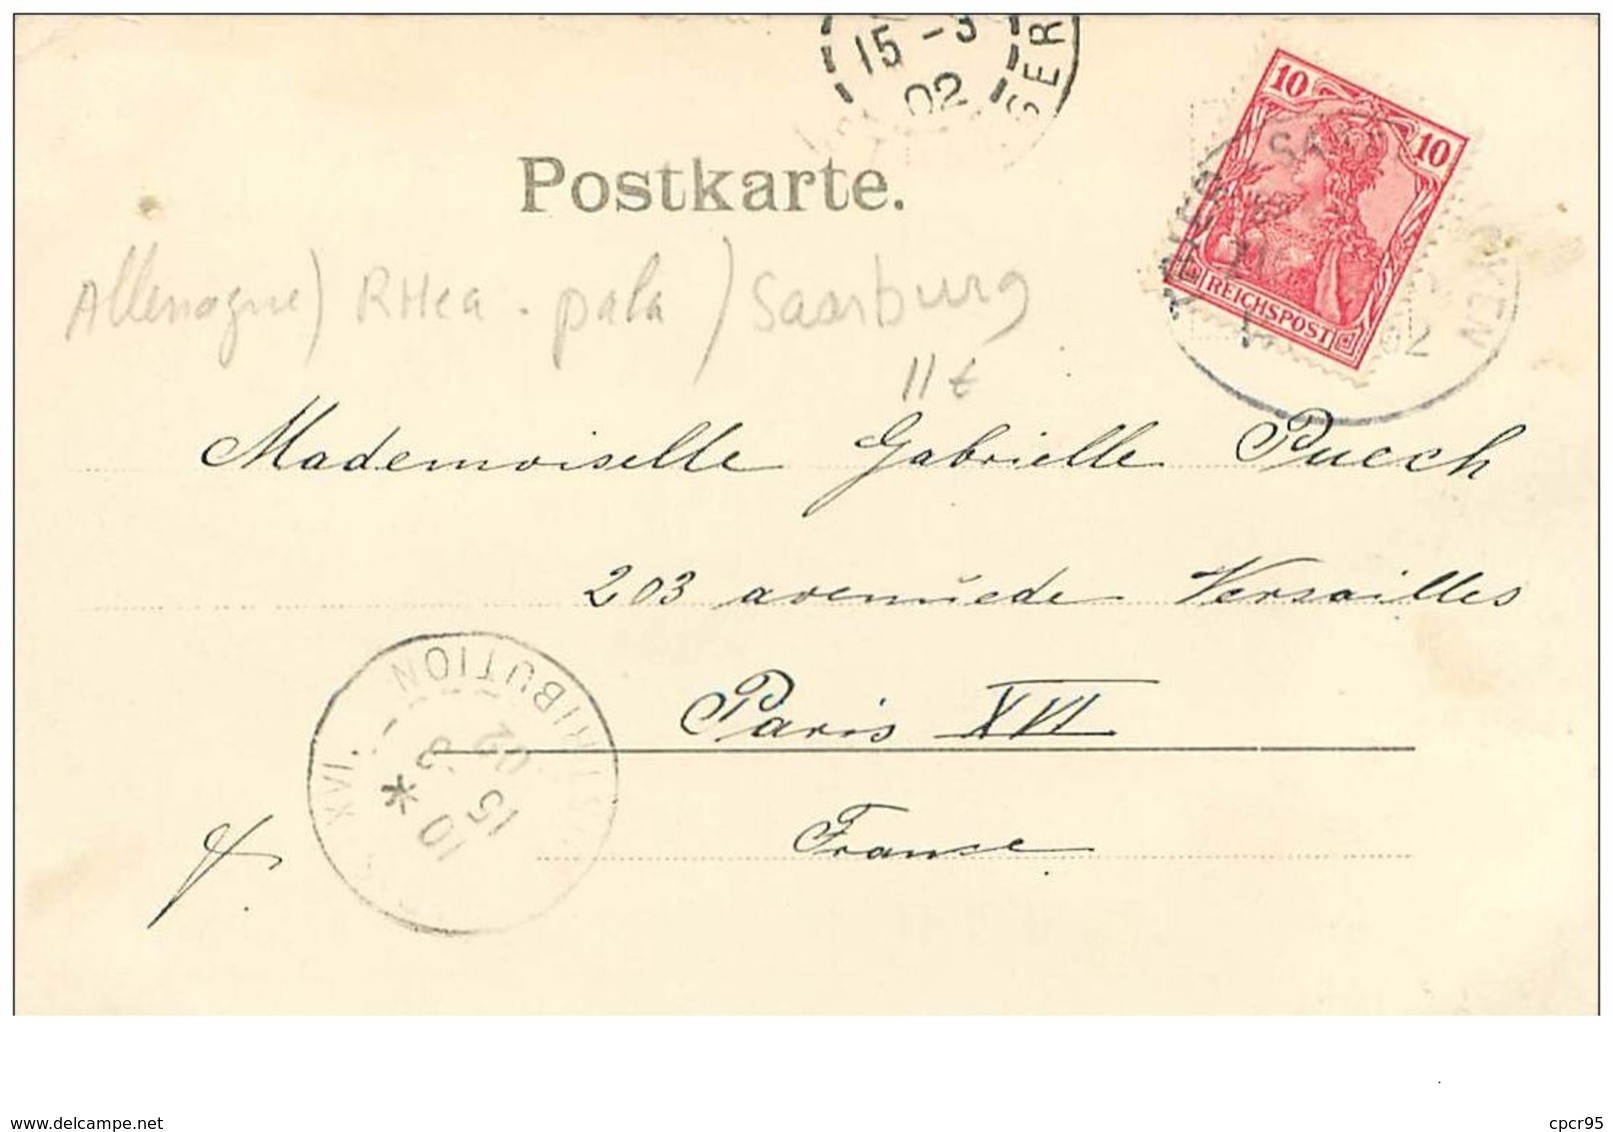 15 - 3
02
SER
10
10
REICHSPOST
TRIER
Postkarte.
Allemagne) RHea - pala / Saarburg
11€
Mademoiselle Gabrielle Puech
203 avenue de Versailles
Paris XVI
France
DISTRIBUTION
XVI
10
15
3
02
www.delcampe.net
cpcr95